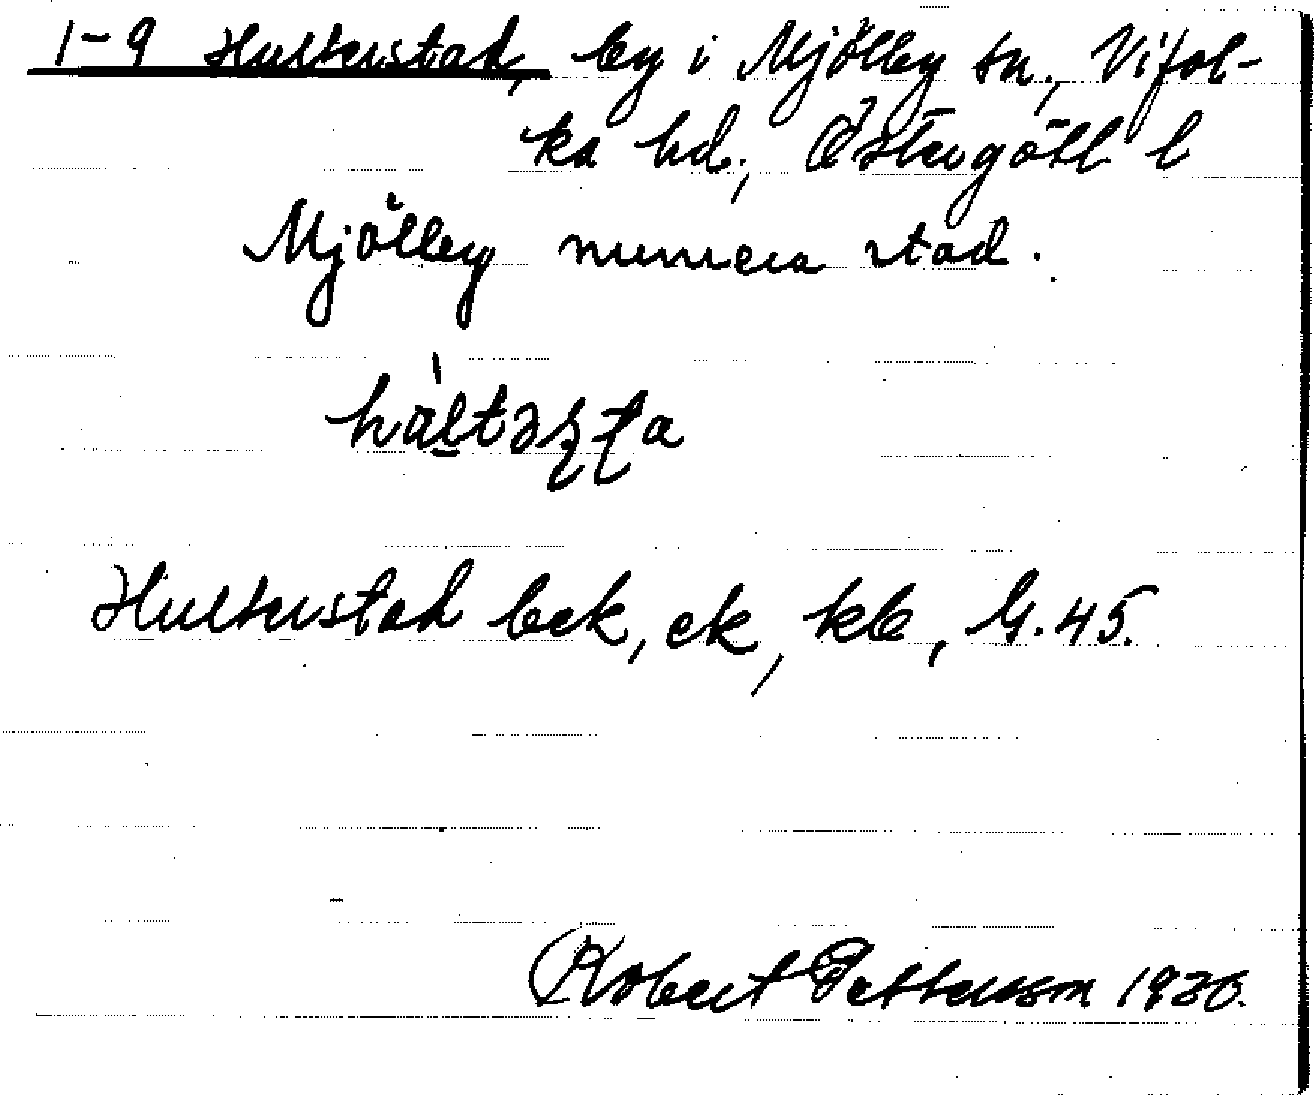 1-9 Hulterstad, by i Mjölby sn, Vifol-
ka hd, Östergötl l
Mjölby numera stad.
Hulterstad bek, ek, kb, G. 45.
Robert Pettersson 1930.